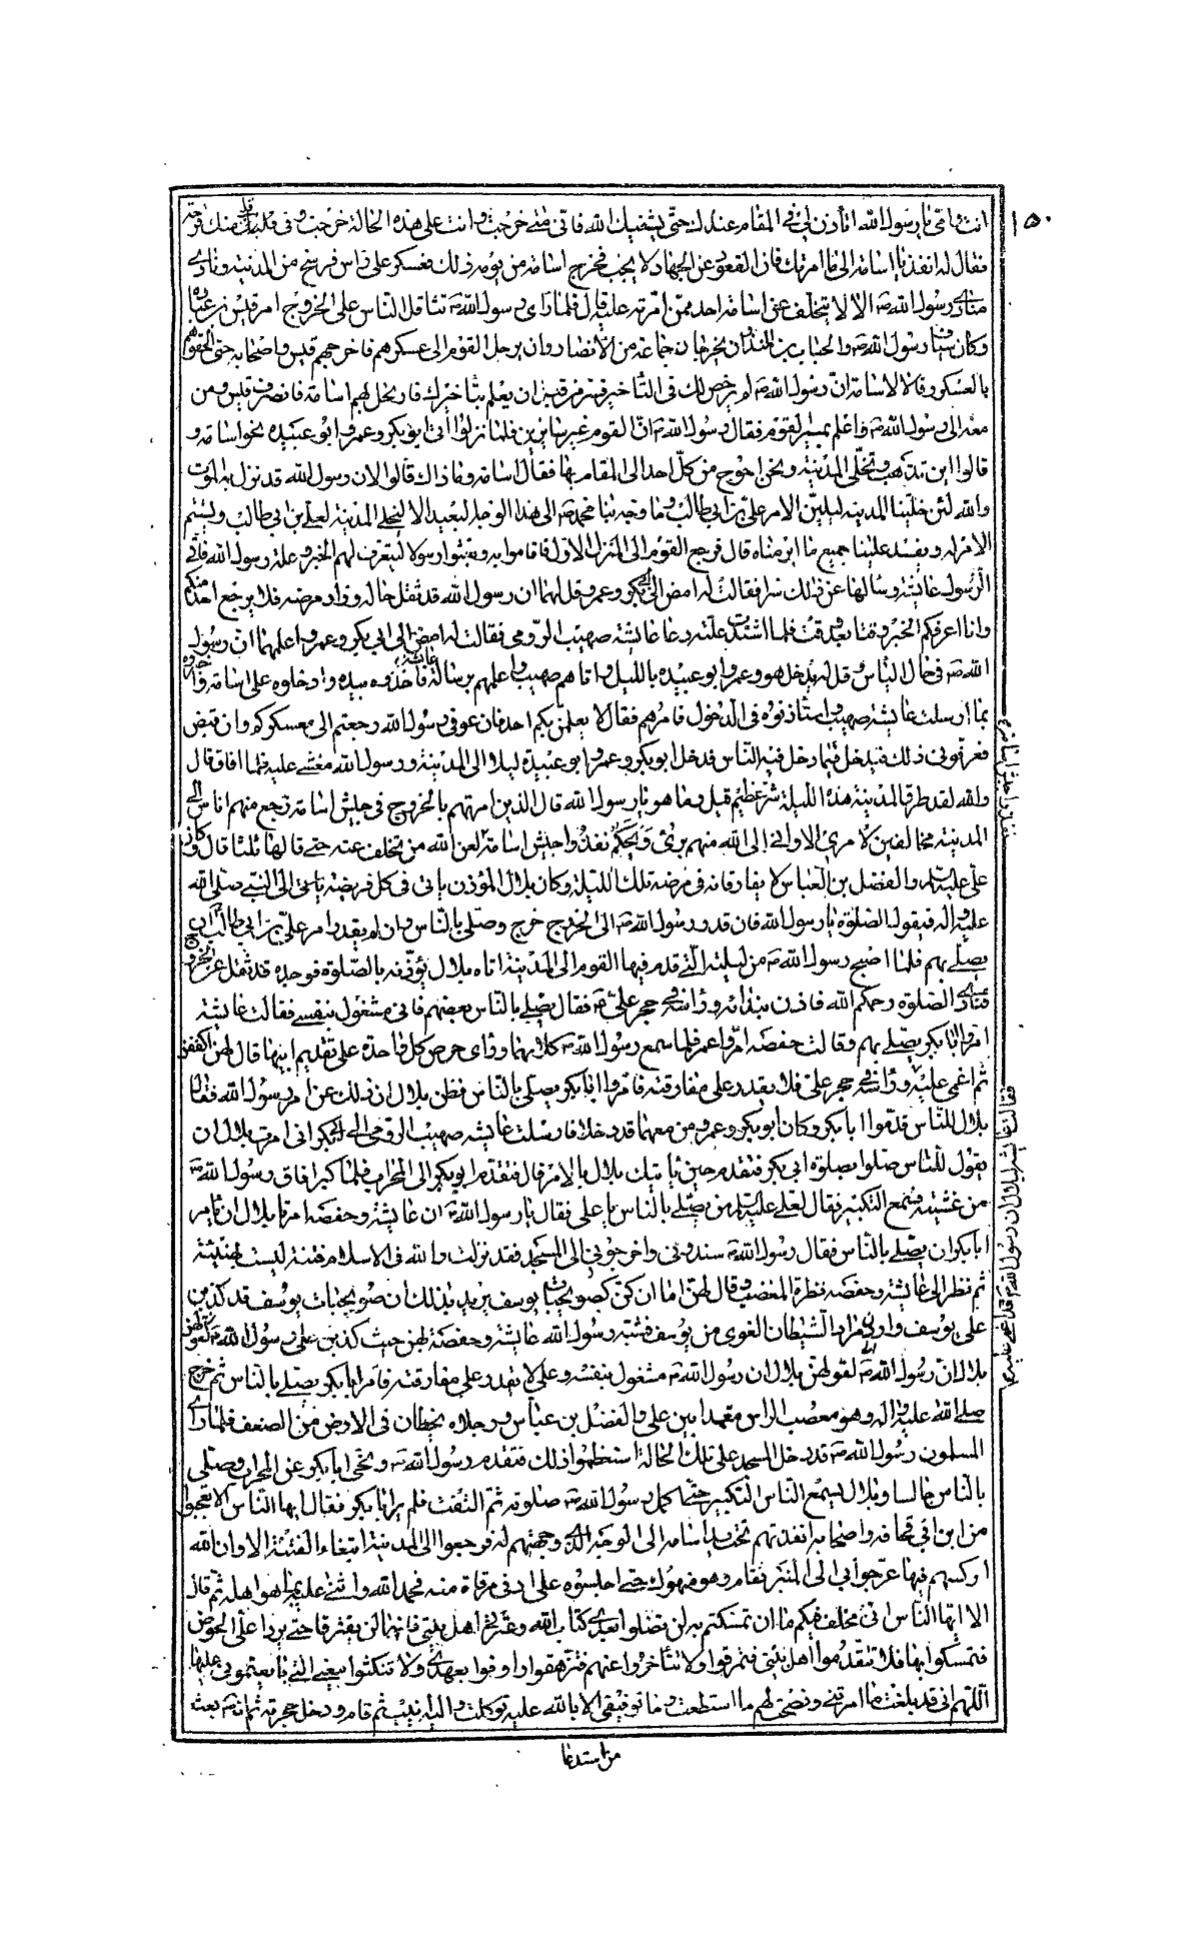 ١٥٠
انت وامّي يا رسول الله أتأذن لي في المقام عندك حتى يشفيك الله فانّي متى خرجت وانت على هذه الحالة خرجت وفي قلبي منك قرحة
فقال له انفذ يا اسامة الى ما امرتك فان القعود عن الجهاد لا يجب فخرج اسامة من يومه ذلك فعسكر على راس فرسخ من المدينة ونادى
منادي رسول الله ص الا لا يتخلّف عن اسامة احد ممّن امّرته عليه قال فلما رأى رسول الله ص تثاقل الناس على الخروج امر قيس بن عباده
وكان سيّاف رسول الله ص والحباب بن المنذر ان يخرجا في جماعة من الانصار وان يرحل القوم الى عسكرهم فاخرجهم قيس واصحابه حتى الحقوهم
بالعسكر وقالا لاسامة انّ رسول الله ص لم يرخص لك في التأخير فسر من قبل ان يعلم بتأخيرك فارتحل بهم اسامة فانصرف قيس ومن
معه الى رسول الله ص واعلم بمسير القوم فقال رسول الله ص انّ القوم غير سائرين فلما نزلوا أتى ابو بكر وعمر وابو عبيده نحو اسامة و
قالوا اين تذهب وتخلّي المدينة ونحن احوج من كلّ احد الى المقام بها فقال اسامة وما ذاك قالوا لان رسول الله قد نزل به الموت
والله لئن خلّينا المدينه ليلينّ الامر علي بن ابي طالب وما وجّهنا محمد ص الى هذا الوجه البعيد الا لنخلي المدينة لعلي بن ابي طالب ويستتم
الامر له ويفسد علينا جميع ما ابرمناه قال فرجع القوم الى المنزل الاول فاقاموا به وبعثوا رسولا ليتعرف لهم الخبر وعلة رسول الله فاتى
الرسول عايشة وسألها عن ذلك سرا فقالت له امض الى ابي بكر وعمر وقل لهما ان رسول الله قد ثقل حاله وزاد مرضه فلا يرجع احد منكم
وانا اعرفكم الخبر وقتا بعد وقت فلما اشتدت علته دعا عايشة صهيب الرومي فقالت له امض الى ابي بكر وعمر واعلمهما ان رسول
الله ص في حال الناس وقل له يدخل هو وعمر وابو عبيده بالليل واتاهم صهيب واعلمهم برسالة عايشة فاخذوه بيده وادخلوه على اسامة واخبروه
بما ارسلت عايشة صهيب واستأذنوه في الدخول فامرهم فقال لا يعلمن بكم احد فان عوفي رسول الله رجعتم الى معسكركم وان قبض
فعرّفوني ذلك فندخل فيما دخل فيه الناس فدخل ابو بكر وعمر وابو عبيدة ليلا الى المدينة ورسول الله مغشي عليه فلما افاق قال
والله لقد طرق المدينة هذه الليلة شرّ عظيم قيل وما هو يا رسول الله قال الذين امرتهم بالخروج في جيش اسامة رجع منهم اناس الى
المدينة مخالفين لامري الا واني الى الله منهم بريء ويحكم نفذوا جيش اسامة لعن الله من تخلف عنه حتى قالها ثلثا قال وكان
علي عليه السلام والفضل بن العباس لا يفارقانه في مرضه تلك الليلة وكان بلال المؤذن ياتي في كل فريضة ياتي الى النبي صلى الله
عليه واله فيقول الصلوة يا رسول الله فان قدر رسول الله ص الى الخروج خرج وصلّى بالناس وان لم يقدر امر علي بن ابي طالب ان
يصلّي بهم فلما اصبح رسول الله ص من ليلته التي قدم فيها القوم الى المدينة اتاه بلال يؤذنه بالصلوة فوجده قد ثقل عن الخروج
فنادى الصلوة رحمكم الله فاذن بندائه ورأسه في حجر علي ع فقال يصلي بالناس بعضهم فاني مشغول بنفسي فقالت عايشة
امروا ابا بكر يصلّي بهم وقالت حفصة امروا عمر فلما سمع رسول الله ص كلامهما ورأى حرص كل واحدة على تقديم ابيها قال لهن اكففن
ثم اغمي عليه ورأسه في حجر علي فلا يقدر على مفارقته فامروا ابا بكر يصلي بالناس فظن بلال ان ذلك عن امر رسول الله فقال
بلال للناس قدّموا ابا بكر وكان ابو بكر وعمر ومن معهما قد دخلا فارسلت عايشه صهيب الرومي الى ابي بكر اني امرت بلال ان
يقول للناس صلوا بصلوة ابي بكر فتقدم حين ياتيك بلال بالامر قال فتقدم ابو بكر الى المحراب فلما كبر افاق رسول الله ص
من غشيته فسمع التكبير فقال لعلي عليه السلام من يصلّي بالناس يا علي فقال يا رسول الله ص ان عايشة وحفصه امرتا بلال ان يامر
ابا بكر ان يصلي بالناس فقال رسول الله ص سندوني واخرجوني الى المسجد فقد نزلت والله في الاسلام فتنة ليست بهينة
ثم نظر الى عايشة وحفصه نظرة المغضب وقال لهن اما ان كن كصويحبات يوسف يريد بذلك ان صويحبات يوسف قد كذبن
على يوسف وارادن مراد الشيطان الغوي من يوسف فشبّه رسول الله عايشة وحفصة لهن حيث كذبن على رسول الله ص لقولهن
بلال انّ رسول الله ص لقولهن بلال ان رسول الله ص مشغول بنفسه وعلي لا يقدر على مفارقته فامر ابا بكر يصلي بالناس ثم خرج
صلى الله عليه واله وهو معصّب الراس معتمدا بين علي والفضل بن عباس ورجلاه يخطان في الارض من الضعف فلما رأى
المسلمون رسول الله ص قد دخل المسجد على تلك الحالة استعظموا ذلك فتقدم رسول الله ص ونحّى ابا بكر عن المحراب وصلّى
بالناس جالسا وبلال يسمع الناس التكبير حتى كمل رسول الله ص صلوته ثم التفت فلم ير ابا بكر فقال ايها الناس الا تعجبوا
من ابن ابي قحافه واصحابه انفذتهم تحت يد اسامه الى الوجه الذي وجهتهم له فرجعوا الى المدينة ابتغاء الفتنة الا وان الله
اركسهم فيها عرجوا بي الى المنبر فقام وهو منهوك حتى اجلسوه على ادنى مرقاة منه فحمد الله واثنى عليه بما هو اهله ثم قال
الا ايها الناس اني مخلف فيكم ما ان تمسكتم به لن تضلوا بعدي كتاب الله وعترتي اهل بيتي فانهما لن يفترقا حتى يردا علي الحوض
فتمسكوا بهما فلا تتقدموا اهل بيتي فتمرقوا ولا تتأخروا عنهم فتزهقوا واوفوا بعهدي ولا تنكثوا ببيعتي التي بايعتموني عليها
اللهم اني قد بلغت ما امرتني ونصحت لهم ما استطعت وما توفيقي الا بالله عليه توكلت واليه انيب ثم قام ودخل حجرته ثم انه ص بعث
من استدعا
نفذوا جيش اسامة
فقالت عايشه لبلال ان رسول الله ص قد اغمي عليه